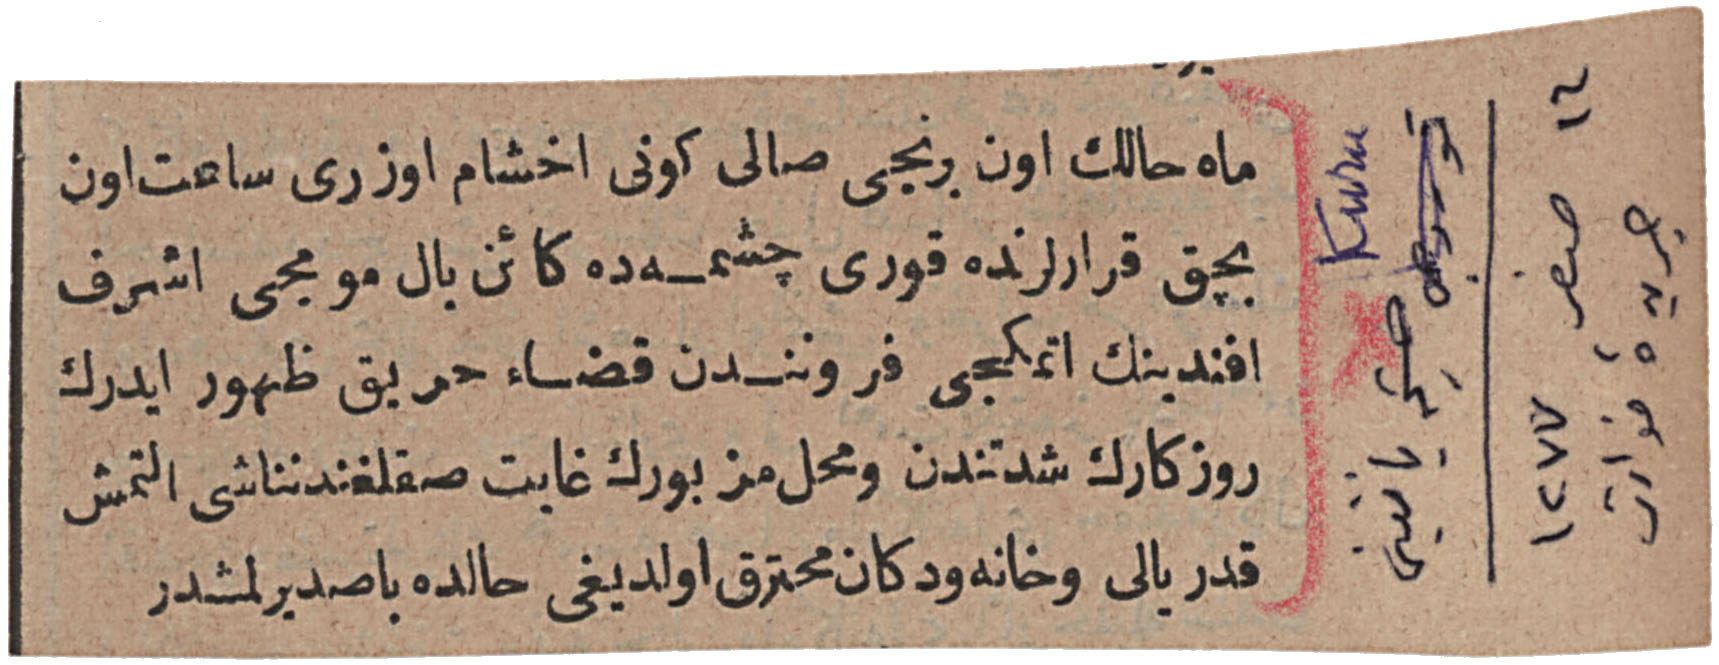 ماه حالك اون برنجی صالی كونی اخشام اوزری ساعت اون
بچق قرارلرنده قوری چشمـه‌ده كائن بال مومجی اشرف
افندینك اتمكجی فروننـدن قضـاء حریق ظهور ایدرك
روزكارك شدتندن ومحل مزبورك غایت صقلغندنناشی التمش
قدر یالی وخانه ودكان محترق اولدیغی حالده باصدیرلمشدر
Kuru
حریق یانغینی
١٦ صفر ١٢٧٧
جریدهٔ حوادث